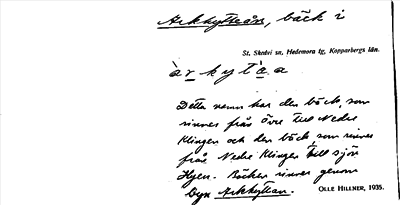 Arkhytteån, bäck i
St. Skedvi sn, Hedemora tg, Kopparbergs län.
àr kyt`a a
Detta namn har den bäck, som
rinner från Övre till Nedre
Klingen och den bäck som rinner
från Nedre Klingen till sjön
Hyen. Bäcken rinner genom
byn Arkhyttan.
OLLE HILLNER, 1935.